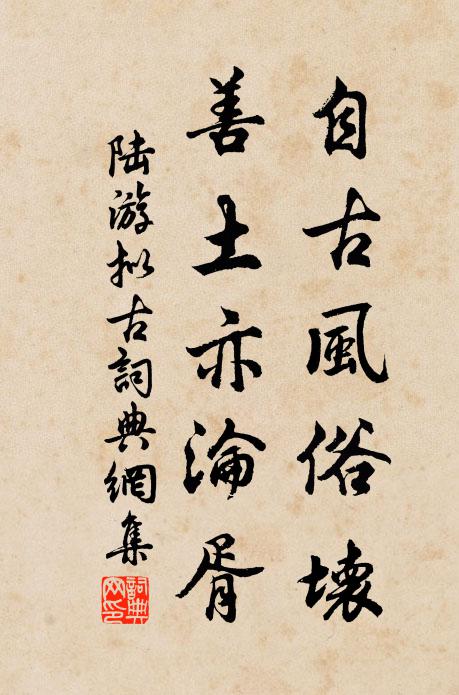 自古風俗壞
善士亦淪胥
陸游拟古詞典網集
詞典網印